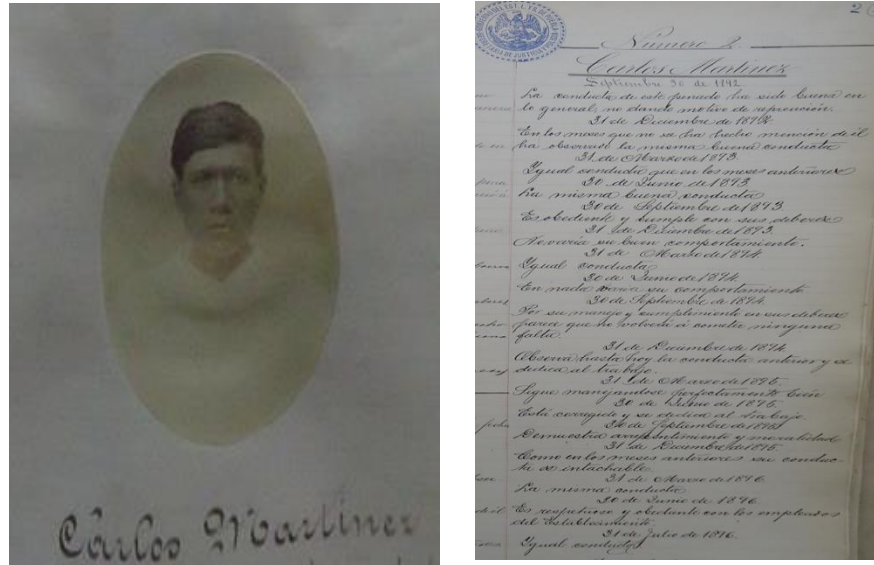 Carlos Martinez
2
Número 2
Carlos Martinez
Septiembre 30 de 1892
La conducta de este penado ha sido buena en
lo general, no dando motivo de reprención.
31 de Diciembre de 1892
En los meses que no se ha hecho mención de él
ha observado la misma buena conducta
31 de Marzo de 1893
Ygual conducta que en los meses anteriores
30 de Junio de 1893
La misma buena conducta
30 de Septiembre de 1893
Es obediente y cumple con sus deberes
31 de Diciembre de 1893.
No varía su buen comportamiento.
31 de Marzo de 1894
Ygual conducta
30 de Junio de 1894.
En nada varia su comportamiento
30 de Septiembre de 1894.
Por su manejo y cumplimiento en sus deberes
parece que no volverá á cometer ninguna
falta.
31 de Diciembre de 1894
Observa hasta hoy la conducta anterior y se
dedica al trabajo.
31 de Marzo de 1895.
Sigue manejandose perfectamente bien
30 de Junio de 1895
Está corregido y se dedica al trabajo.
30 de Septiembre de 1895
Demuestra arrepentimiento y moralidad
31 de Diciembre de 1895.
Como en los meses anteriores su conduc-
ta es intachable
31 de Marzo de 1896
La misma conducta
30 de Junio de 1896
Es respetuoso y con los empleados
del Establecimiento.
31 de Julio de 1896.
Ygual conducta